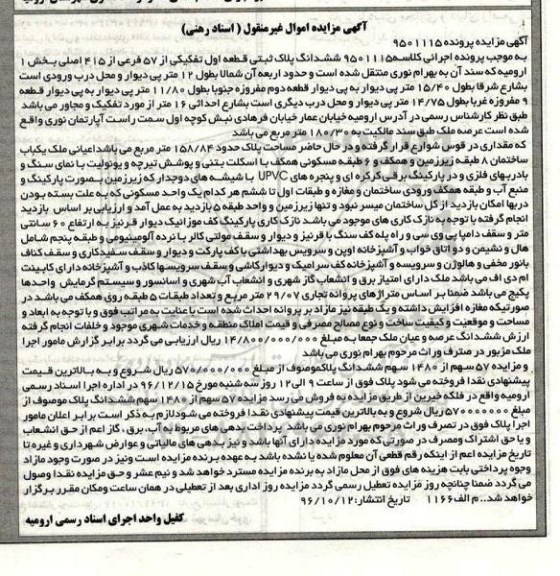 آگهی مزایده اموال غیرمنقول ( اسناد رهنی)
آگهی مزایده پرونده ۹۵۰۱۱۱۵
به موجب پرونده اجرائی کلاسه۹۵۰۱۱۱۵ ششدانگ پلاک ثبتی قطعه اول تفکیکی از ۵۷ فرعی از ۴۱۵ اصلی بخش ۱
ارومیه که سند آن به بهرام نوری منتقل شده است و حدود اربعه آن شمالا بطول ۱۲ متر پی دیوار و محل درب ورودی است
بشارع شرقا بطول ۱۵/۴۰ متر پی دیوار به پی دیوار قطعه دوم مفروزه جنوبا بطول ۱۱/۸۰ متر پی دیوار به پی دیوار قطعه
۹ مفروزه غربا بطول ۱۴/۷۵ متر پی دیوار و محل درب دیگری است بشارع احداثی ۱۶ متر از مورد تفکیک و مجاور می باشد
طبق نظر کارشناس رسمی در آدرس ارومیه خیابان عمار خیابان فرهادی نبش کوچه اول سمت راست آپارتمان نوری واقع
شده است عرصه ملک طبق سند مالکیت به ۱۸۰/۳۰ متر مربع می باشد
که مقداری در قوس شوارع قرار گرفته و در حال حاضر مساحت پلاک حدود ۱۵۸/۸۴ متر مربع می باشد اعیانی ملک یکباب
ساختمان ۸ طبقه زیرزمین و همکف و ۶ طبقه مسکونی همکف با اسکلت بتنی و پوشش تیرچه و یونولیت با نمای سنگ و
بادربهای فلزی و در پارکینگ برقی کرکره ای و پنجره های UPVC با شیشه های دوجدار که زیرزمین بصورت پارکینگ و
منبع آب و طبقه همکف ورودی ساختمان و مغازه و طبقات اول تا ششم هر کدام یک واحد مسکونی که به علت بسته بودن
دربها امکان بازدید از کل ساختمان میسر نبود و تنها زیرزمین و واحد طبقه ۵ بازدید به عمل آمد و ارزیابی بر اساس بازدید
انجام گرفته با توجه به نازک کاری های موجود می باشد نازک کاری پارکینگ کف موزائیک دیوار قرنیز به ارتفاع ۶۰ سانتی
متر و سقف دامپا پی وی سی و راه پله کف سنگ با قرنیز و دیوار و سقف مولتی کالر با نرده آلومینیومی و طبقه پنجم شامل
هال و نشیمن و دو اتاق خواب و آشپزخانه اوپن و سرویس بهداشتی با کف پارکت و دیوار و سقف سفیدکاری و سقف کناف
بانور مخفی و هالوژن و سرویسه و آشپزخانه کف سرامیک و دیوارکاشی و سقف سرویسها کاذب و آشپزخانه دارای کابینت
ام دی اف می باشد ملک دارای امتیاز برق و انشعاب گاز شهری و انشعاب آب شهری و آسانسور و سیستم گرمایش واحدها
پکیج می باشد ضمنا بر اساس متراژهای پروانه تجاری ۲۹/۰۷ متر مربع و تعداد طبقات ۵ طبقه روی همکف می باشد در
صورتیکه مغازه افزایش داشته و یک طبقه نیز مازاد بر پروانه احداث شده است با عنایت به مراتب فوق و با توجه به ابعاد و
مساحت و موقعیت و کیفیت ساخت و نوع مصالح مصرفی و قیمت املاک منطقه و خدمات شهری موجود و خلفات انجام گرفته
ارزش ششدانگ عرصه و عیان ملک جمعا به مبلغ ۱۴/۸۰۰/۰۰۰/۰۰۰ ریال ارزیابی می گردد برابر گزارش مامور اجرا
ملک مزبور در صترف وراث مرحوم بهرام نوری می باشد
و مزایده ۵۷ سهم از ۱۴۸۰ سهم ششدانگ پلاکموصوف از مبلغ ۵۷۰/۰۰۰/۰۰۰ ریال شروع و به بالاترین قیمت
پیشنهادی نقدا فروخته می شود پلاک فوق از ساعت ۹ الی۱۲ روز سه شنبه مورخ ۹۶/۱۲/۱۵ در اداره اجرا اسناد رسمی
ارومیه واقع در فلکه خیبرین از طریق مزایده به فروش می رسد مزایده ۵۷ سهم از ۱۴۸۰ سهم ششدانگ پلاک موصوف از
مبلغ ۵۷۰۰۰۰۰۰۰ ریال شروع و به بالاترین قیمت پیشنهادی نقدا فروخته می شودلازم به ذکر است برابر اعلان مامور
اجرا پلاک فوق در تصرف وراث مرحوم بهرام نوری می باشد پرداخت بدهی های مربوط به آب، برق ، گاز اعم از حق انشعاب
و یا حق اشتراک ومصرف در صورتی که مورد مزایده دارای آنها باشد و نیز بدهی های مالیاتی و عوارض شهرداری و غیره تا
تاریخ مزایده اعم از اینکه رقم قطعی آن معلوم شده یا نشده باشد به عهده برنده مزایده است ونیز در صورت وجود مازاد
وجوه پرداختی بابت هزینه های فوق از محل مازاد به برنده مزایده مسترد خواهد شد و نیم عشر و حق مزایده نقدا وصول
می گردد ضمنا چنانچه روز مزایده تعطیل رسمی گردد مزایده روز اداری بعد از تعطیلی در همان ساعت ومکان مقرر برگزار
خواهد شد.. م الف۱۱۶۶ تاریخ انتشار: ۹۶/۱۰/۱۲
کفیل واحد اجرای اسناد رسمی ارومیه